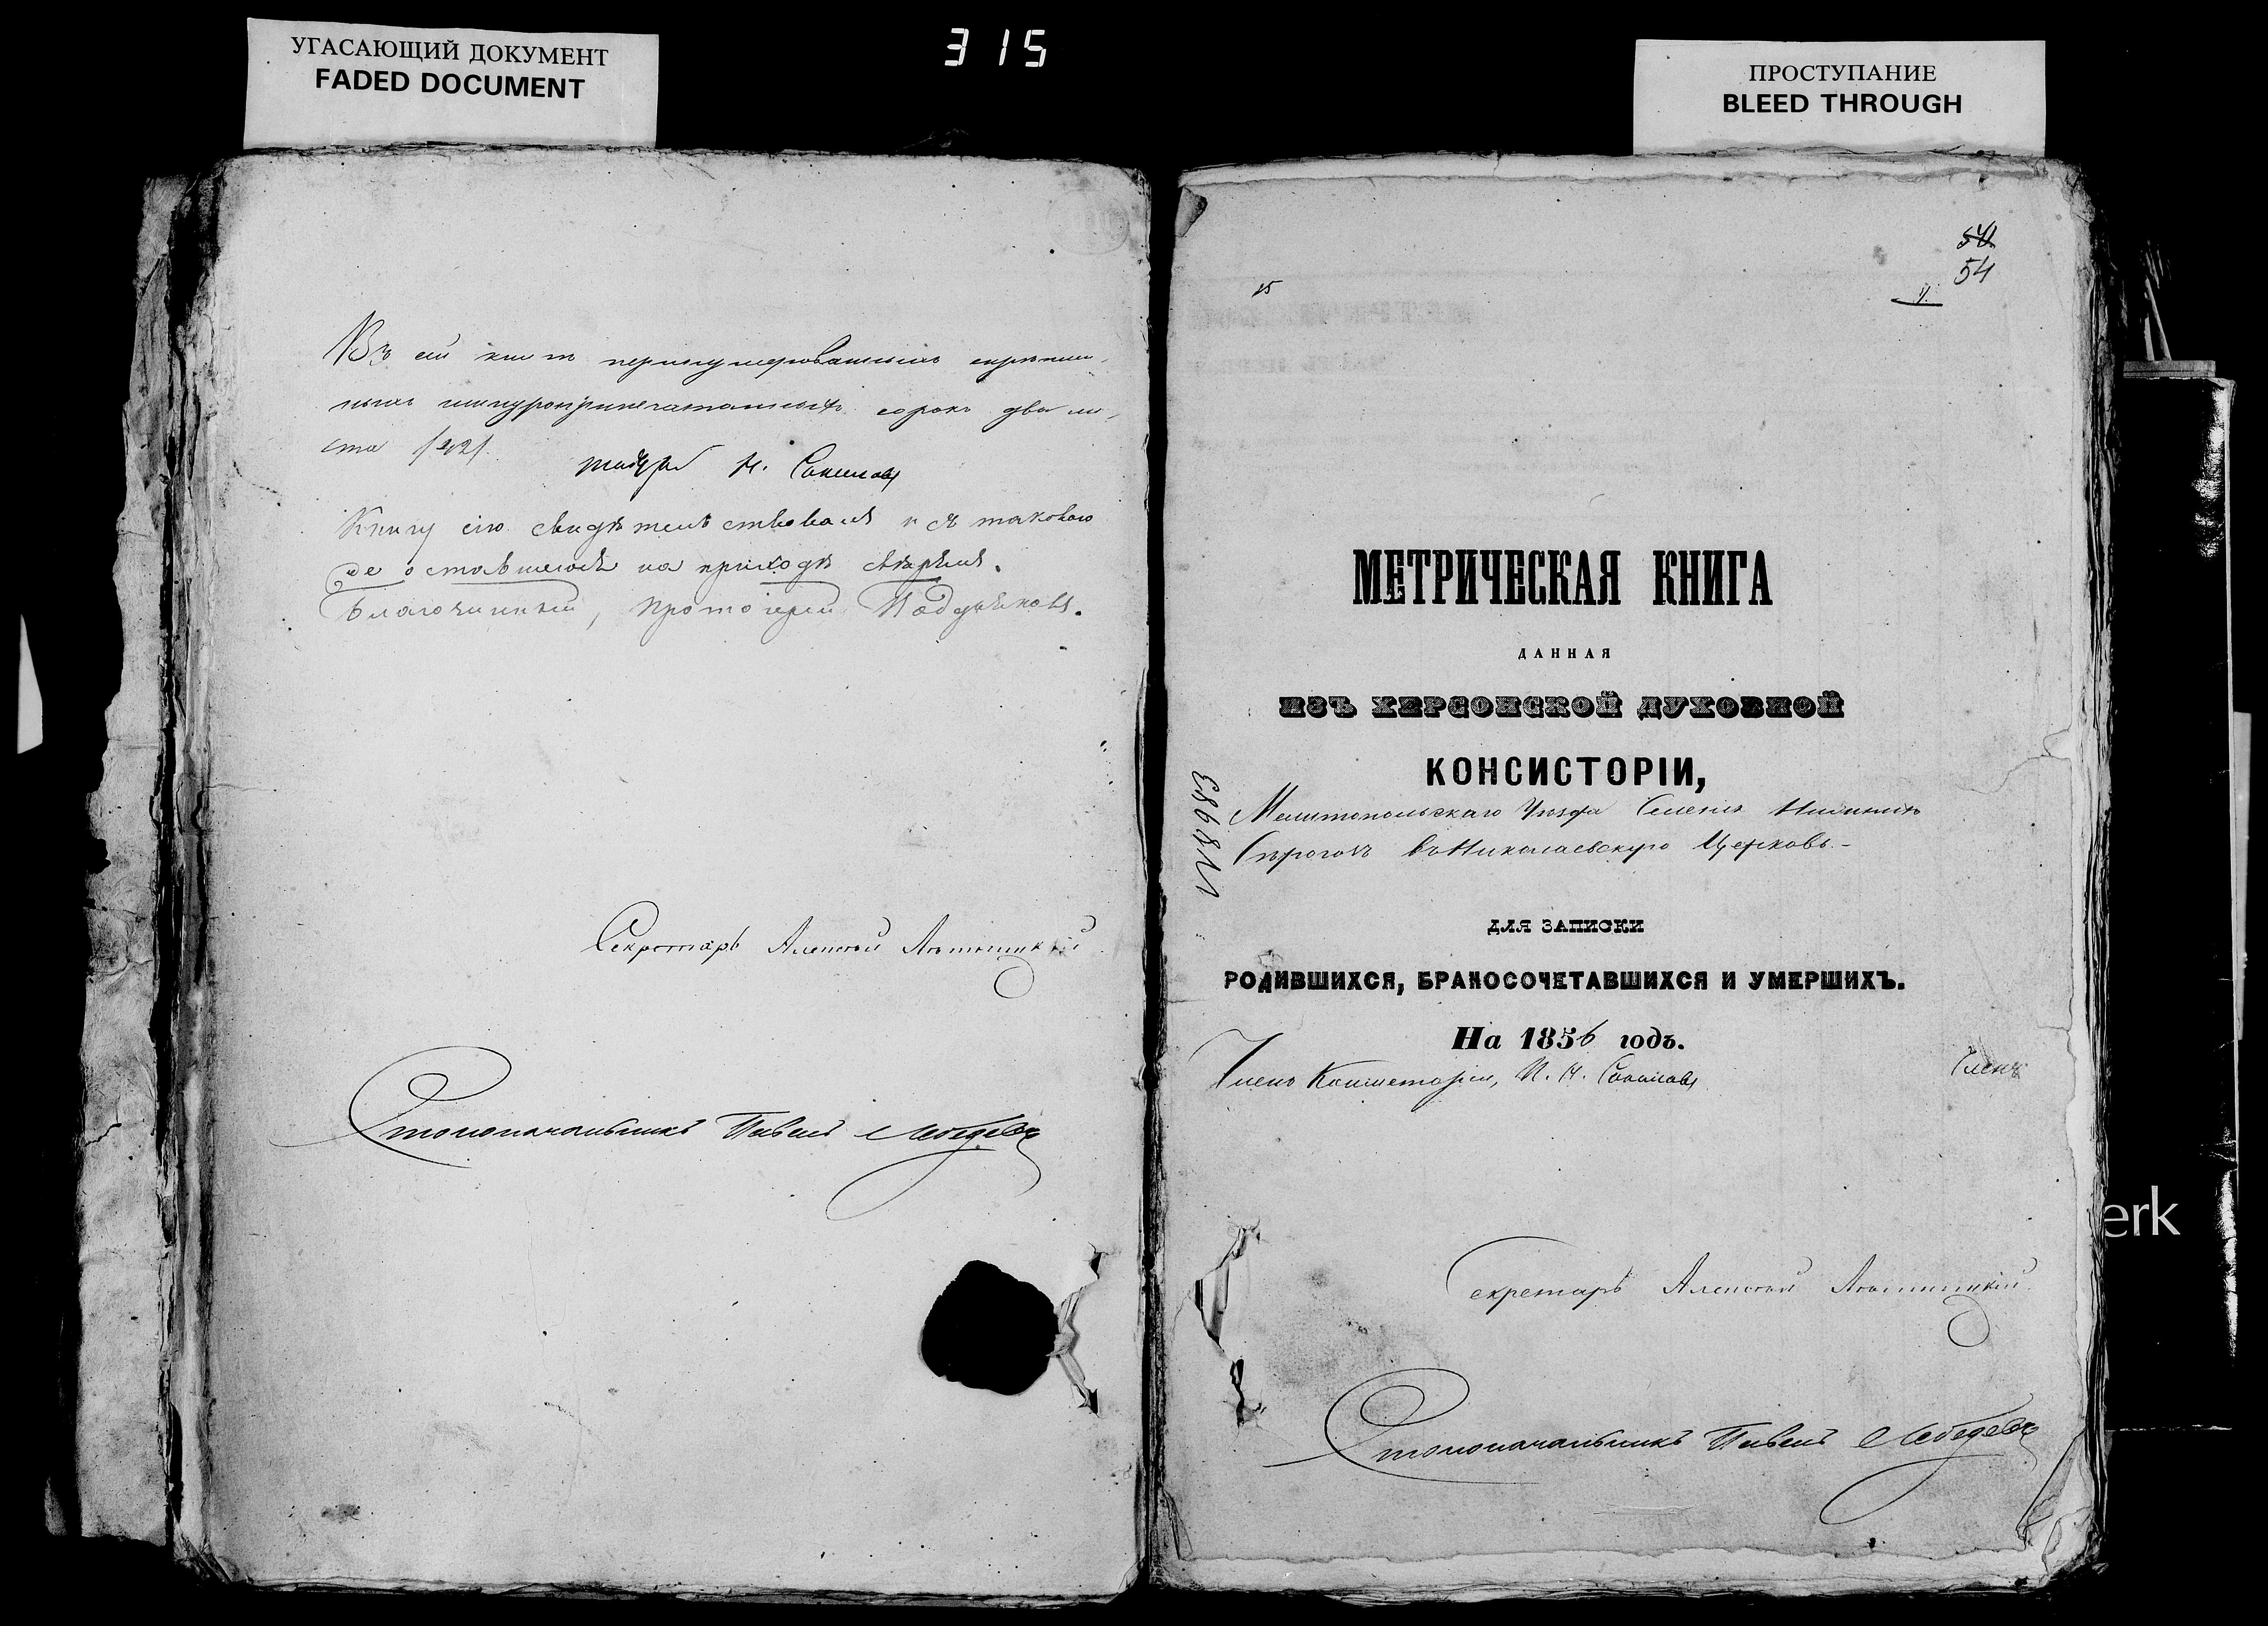 УГАСАЮЩИЙ ДОКУМЕНТ
FADED DOCUMENT
315
ПРОСТУПАНИЕ
BLEED THROUGH
Въ сей книгѣ перенумерованныхъ скрѣплен-
ныхъ шнуроприпечатанныхъ сорокъ два ли-
ста /42/.
Н. Соколовъ
Книгу сію свидѣтельствовалъ и съ таковою
же оставшеюся на приходѣ свѣрялъ.
Благочинный, Протоіерей
Секретарь Алексѣй
Столоначальникъ Павелъ Лебедевъ
54
15
1.
МЕТРИЧЕСКАЯ КНИГА
ДАННАЯ
ИЗЪ ХЕРСОНСКОЙ ДУХОВНОЙ
КОНСИСТОРІИ,
Мелитопольскаго Уѣзда Селенія Нижнихъ
Сѣрогозъ въ Николаевскую Церковь.-
№8983
ДЛЯ ЗАПИСКИ
РОДИВШИХСЯ, БРАКОСОЧЕТАВШИХСЯ И УМЕРШИХЪ.
На 1856 годъ.
Членъ Консисторіи, П. Н. Соколовъ
Членъ
Секретарь Алексѣй
Столоначальникъ Павелъ Лебедевъ
erk